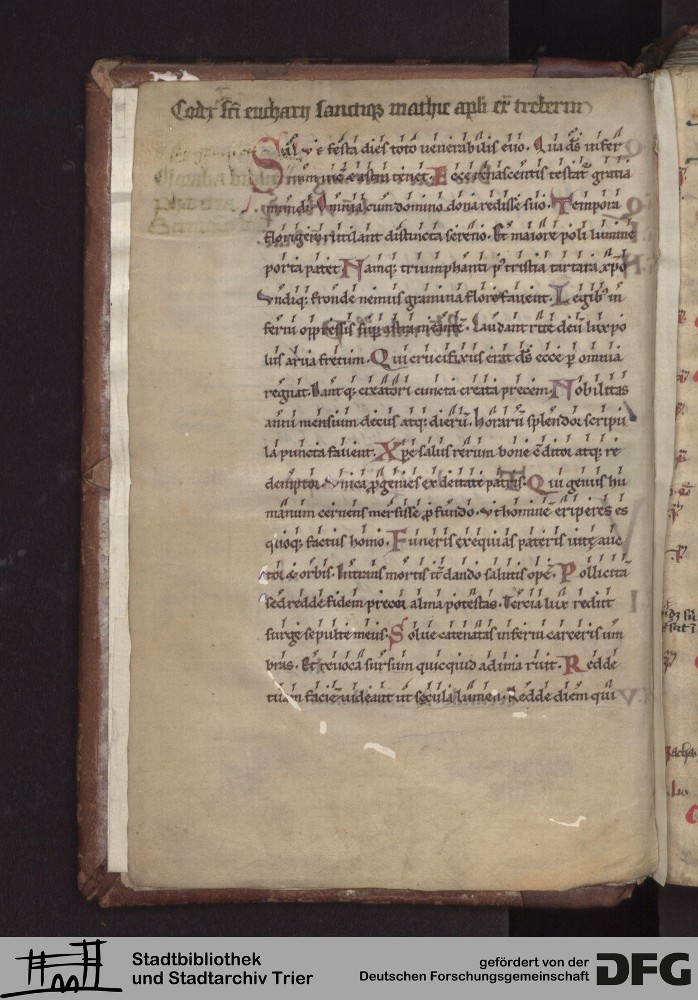 Codex sci eucharii sanctiq; mathie apli ex treberim
Salve festa dies toto venerabilis evo. Qua ds infer
num vicit & astra tenet. Ecce renascentis testat gratia
mundi. Omnia cum domino dona redisse suo. Tempora
florigero rutilant distincta sereno. Et maiore poli lumine
porta patet. Namq; triumphanti p' tristia tartara xpo
Undiq; fronde nemus gramina flore favent. Legib' in
ferni oppressis sup astra meante. Laudant rite deu lux po
lus arva fretum. Qui crucifixus erat ds ecce p omnia
regnat. Dantq; creatori cuncta creata precem. Nobilitas
anni mensium decus atq; dieru. horaru splendor scripu
la puncta favent. Xpe salus rerum bone coditor atq; re
demptor. Unica pgenies ex deitate patris. Qui genus hu
manum cernens mersisse pfundo. Ut homine eriperes es
quoq; factus homo. Funeris exequias pateris vite auc
tor & orbis. Intrans mortis iter dando salutis ope. Pollicita
sed redde fidem precor alma potestas. Tercia lux rediit
surge sepulte meus. Solve catenatas inferni carceris um
bras. Et revoca sursum quicquid ad ima ruit. Redde
tuam facie videant ut secula lumen. Redde diem qui
Stadtbibliothek
und Stadtarchiv Trier
gefördert von der
Deutschen Forschungsgemeinschaft
DFG